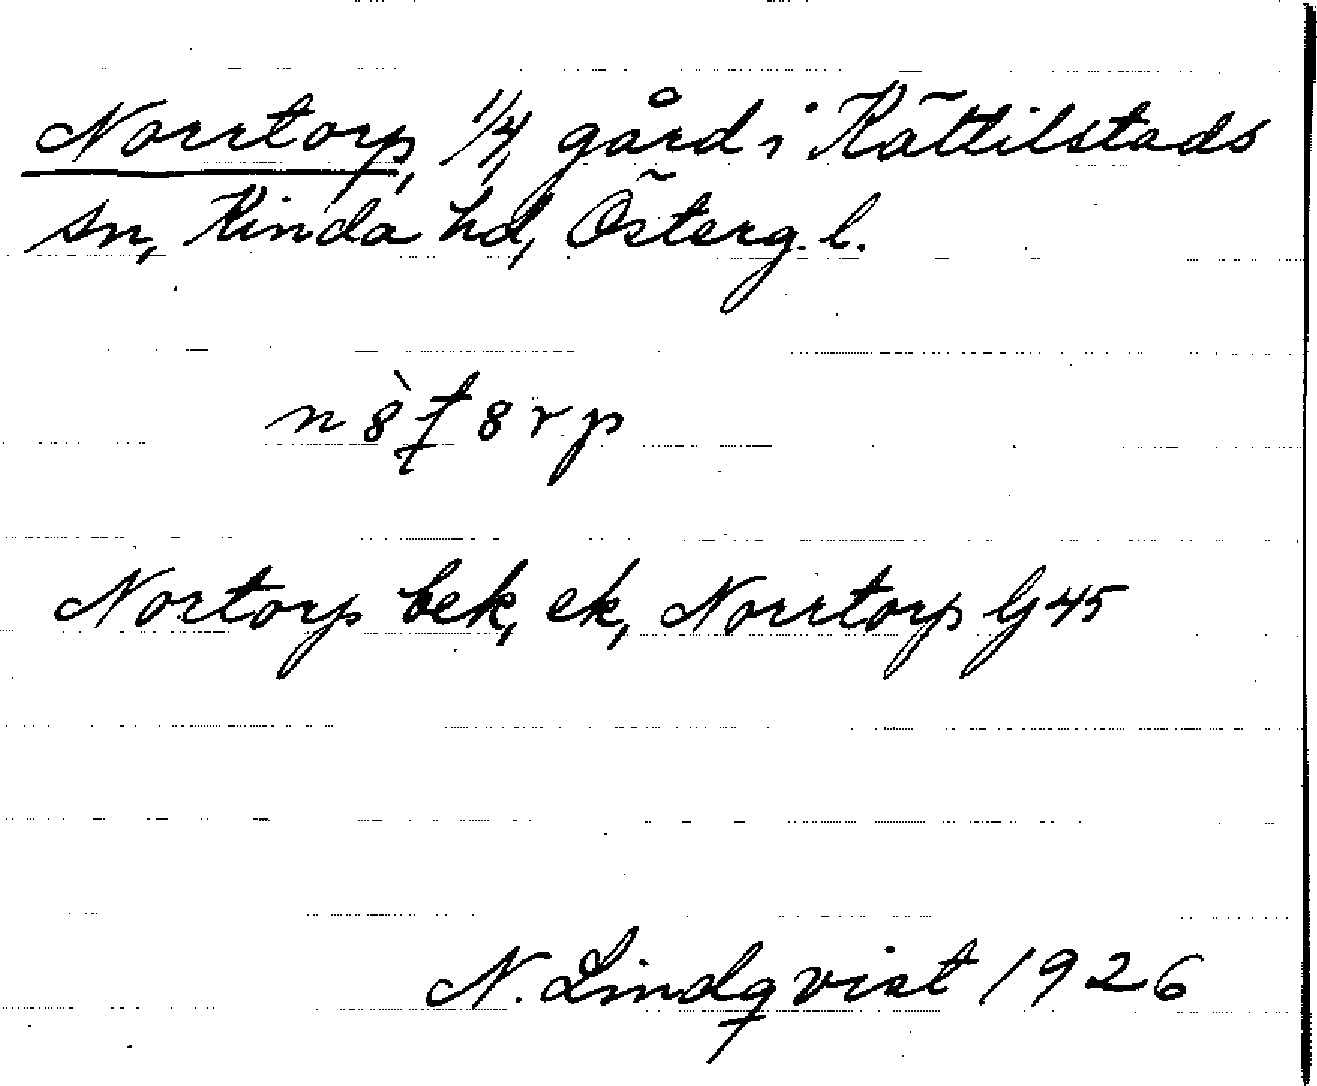 Norrtorp, 1/4, gård i Kättilstads
sn, Kinda hd, Österg. l.
Nortorp bek, ek, Norrtorp Gj 45
N. Lindqvist 1926